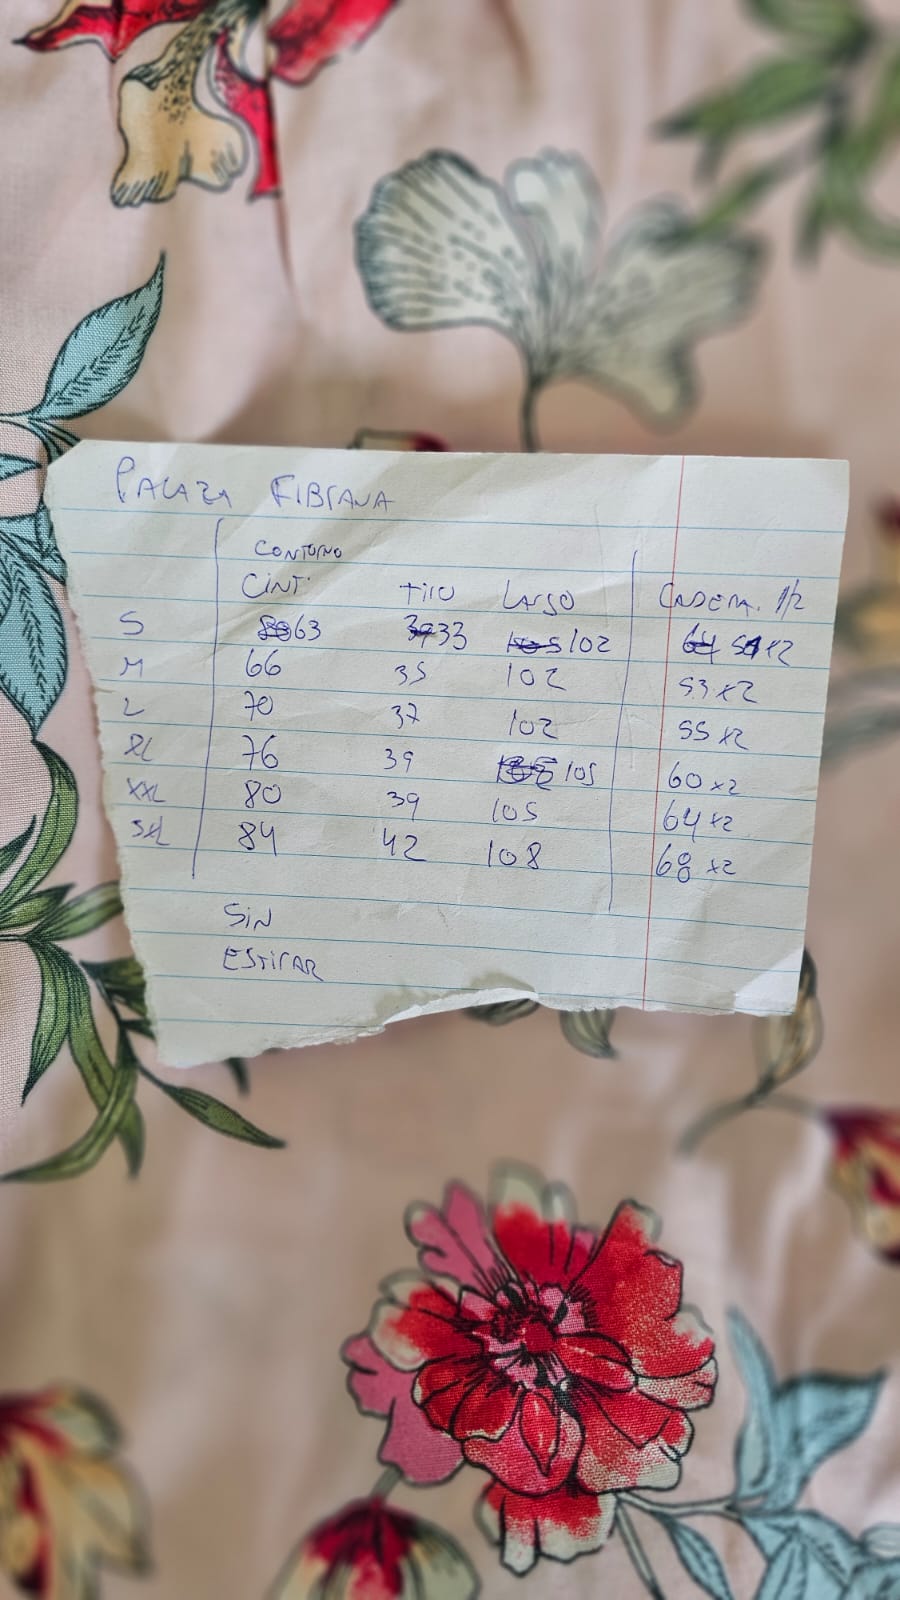 PALAZA FIBRANA
CONTORNO
CINT. tiro LARGO CADERA. 1/2
S 63 33 102 x2
M 66 35 102 53 x2
L 70 37 102 55 x2
XL 76 39 105 60 x2
XXL 80 39 105 64 x2
3XL 84 42 108 68 x2
SIN
ESTIRAR